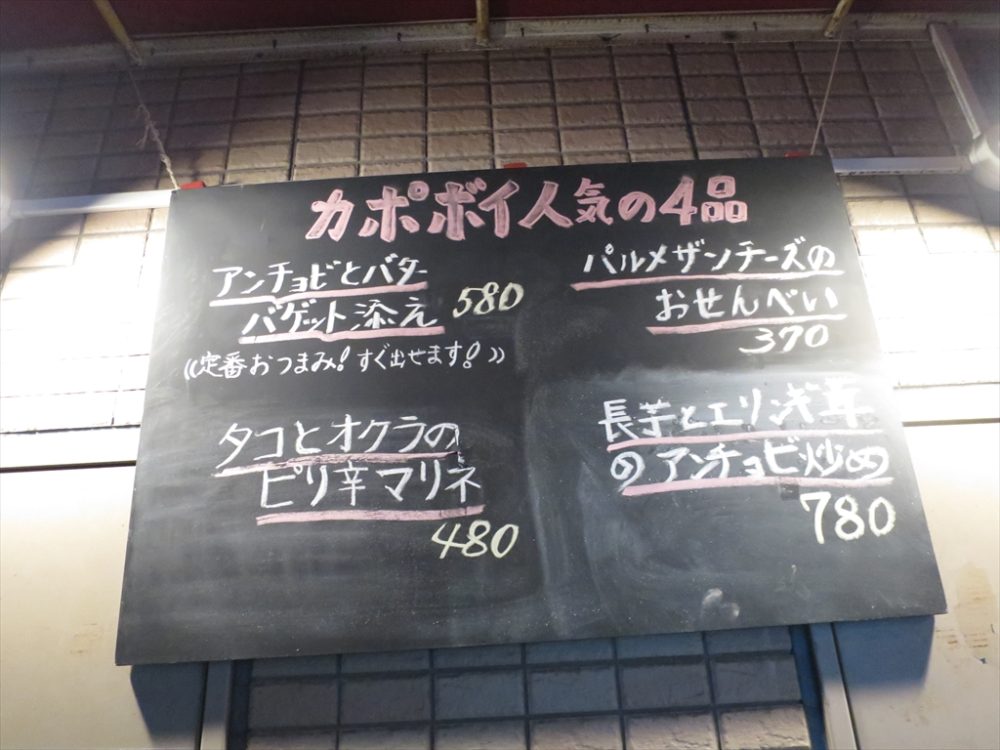 カポボイ人気の4品
アンチョビとバター
バゲット添え 580
((定番おつまみ! すぐ出せます!))
タコとオクラの
ピリ辛マリネ
480
パルメザンチーズの
おせんべい
370
長芋とエリンギ
のアンチョビ炒め
780